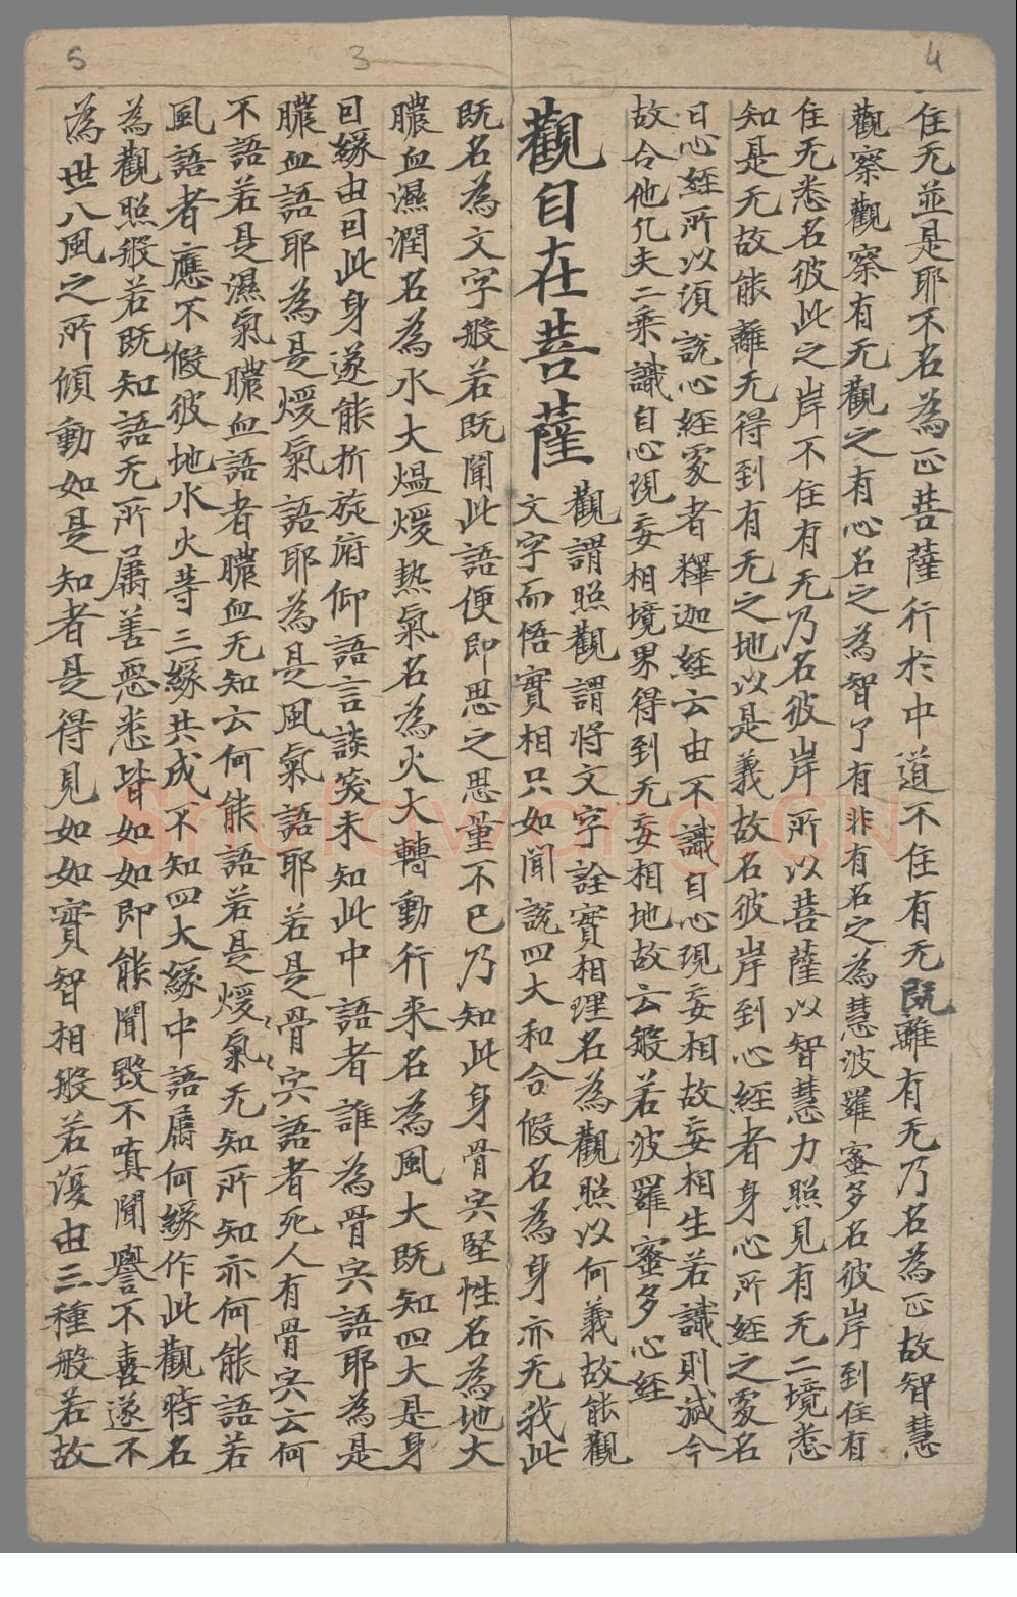 4
3
5
住无並是耶不名為正菩薩行於中道不住有无既離有无乃名為正故智慧
觀察觀察有无觀之有心名之為智了有非有名之為慧波羅蜜多名彼岸到住有
住无悉名彼此之岸不住有无乃名彼岸所以菩薩以智慧力照見有无二境悉
知是无故能離无得到有无之地以是義故名彼岸到心經者身心所經之處名
曰心經所以須說心經家者釋迦經云由不識自心現妄相故妄相生若識則滅今
故令他凡夫二乘識自心現妄相境界得到无妄相地故云般若波羅蜜多心經
觀自在菩薩
觀謂照觀謂將文字詮實相理名為觀照以何義故能觀
文字而悟實相只如聞說四大和合假名為身亦无我此
既名為文字般若既聞此語便即思之思量不已乃知此身骨宍堅性名為地大
膿血濕潤名為水大熅煖熱氣名為火大轉動行来名為風大既知四大是身
曰緣由曰此身遂能折旋府仰語言談笑未知此中語者誰為骨宍語耶為是
膿血語耶為是煖氣語耶為是風氣語耶若是骨宍語者死人有骨宍云何
不語若是濕氣膿血語者膿血无知云何能語若是煖氣无知所知亦何能語若
風語者應不假彼地水火等三緣共成不知四大緣中語屬何緣作此觀時名
為觀照般若既知語无所屬善惡悉皆如如即能聞毀不嗔聞譽不喜遂不
為世八風之所傾動如是知者是得見如如實智相般若復由三種般若故